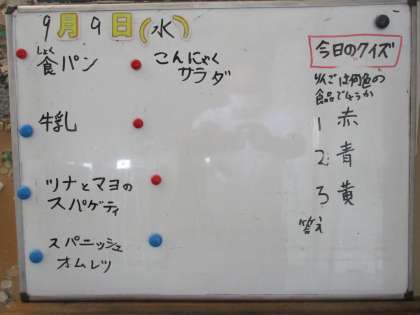 9月9日(水)
しょく
食パン
牛乳
ツナとマヨの
スパゲティ
スパニッシュ
オムレツ
こんにゃく
サラダ
今日のクイズ
りんごは何色の
食品でしょうか
1 赤
2. 青
3 黄
答え